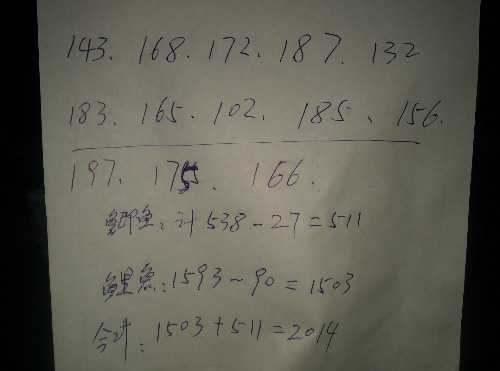 143. 168. 172. 187. 132
183. 165. 102. 185、156.
197. 175. 166.
鲫鱼:计538-27=511
鲤鱼:1593~90=1503
合计:1503+511=2014